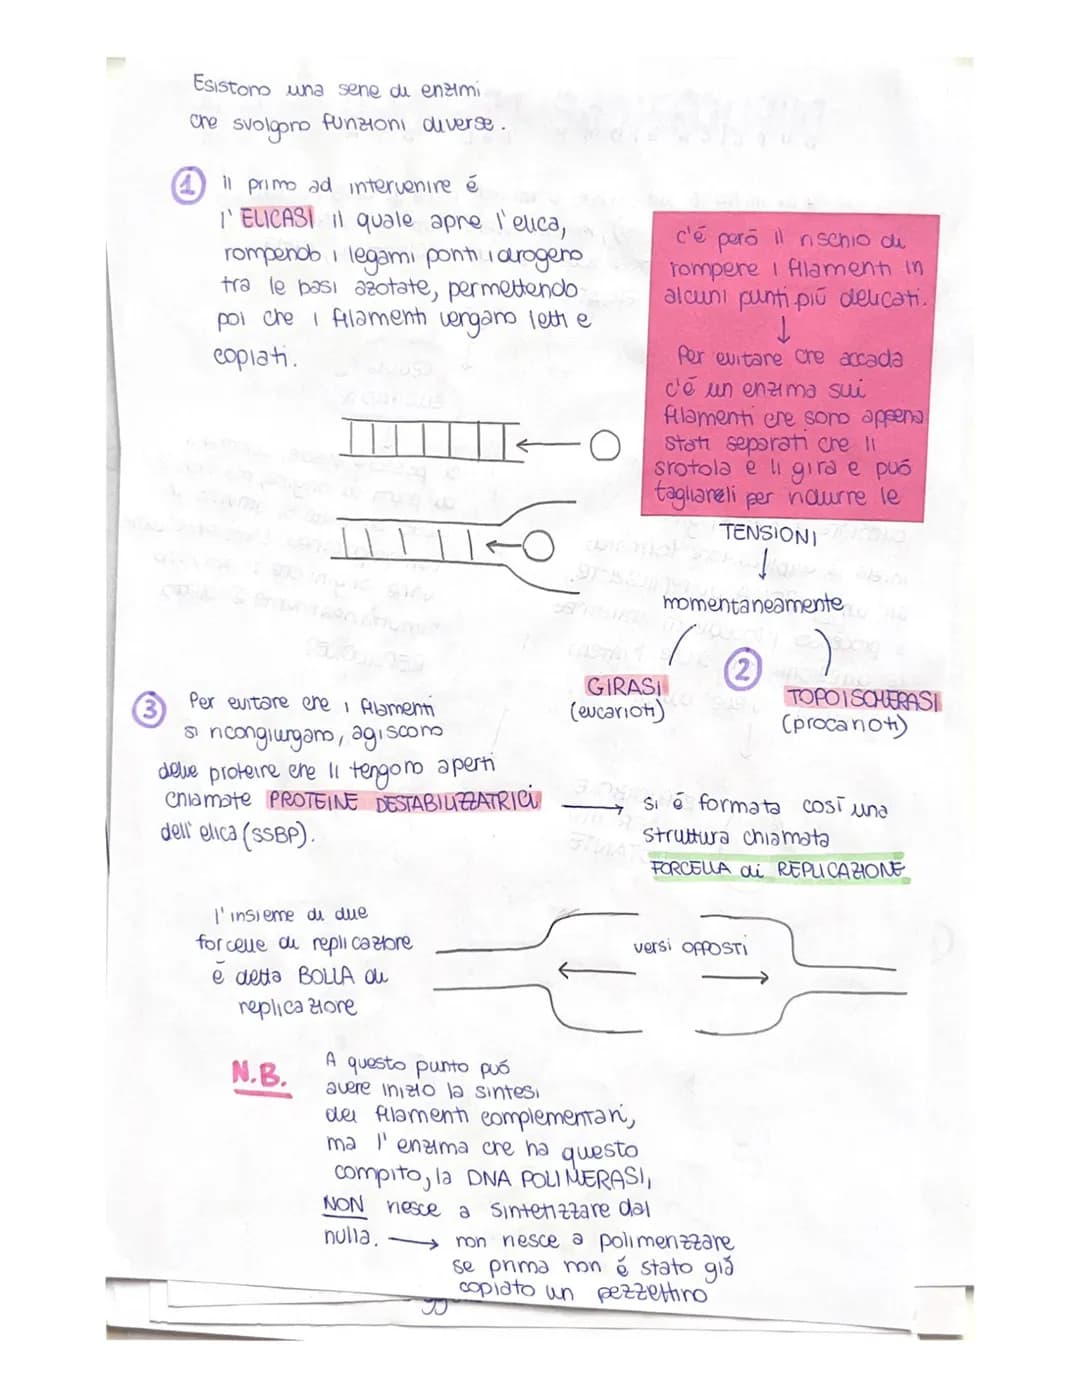 Esistono una serie di enzimi
che svolgono funzioni diverse.
1 Il primo ad intervenire é
l'ELICASI il quale apre l'elica,
rompendo i legami ponti idrogeno
tra le basi azotate, permettendo
poi che i filamenti vengano letti e
copiati.
c'é però il rischio di
rompere i filamenti in
alcuni punti più delicati.
↓
Per evitare che accada
c'é un enzima sui
filamenti che sono appena
stati separati che li
srotola e li gira e può
tagliareli per ridurre le
TENSIONI
↓
momentaneamente
2
GIRASI
(eucarioti)
TOPOISOMERASI
(procarioti)
3 Per evitare che i filamenti
si ricongiungano, agiscono
delle proteine che li tengono aperti
chiamate PROTEINE DESTABILIZZATRICI
dell'elica (SSBP).
→ si é formata così una
struttura chiamata
FORCELLA di REPLICAZIONE
l'insieme di due
forcelle di replicazione
é detta BOLLA di
replicazione
versi OPPOSTI
N.B.
A questo punto può
avere inizio la sintesi
dei filamenti complementari,
ma l'enzima che ha questo
compito, la DNA POLIMERASI,
NON riesce a sintetizzare dal
nulla. → non riesce a polimerizzare
se prima non é stato già
copiato un pezzettino